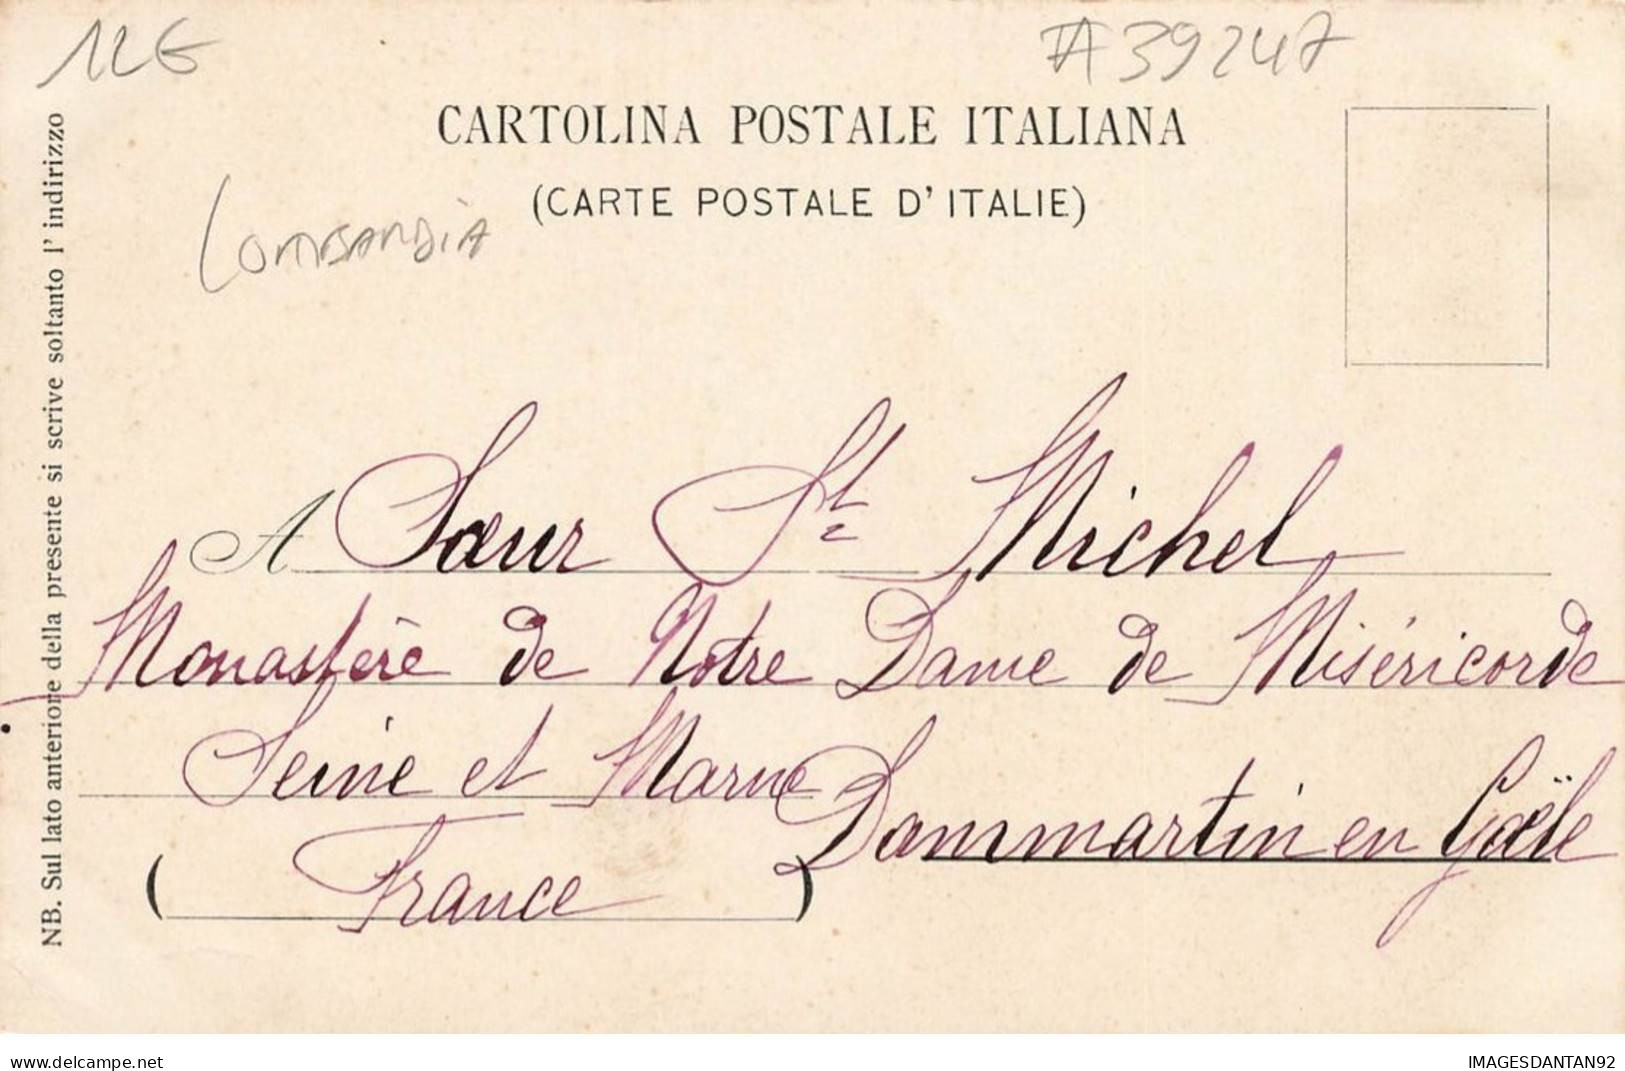 12€
#39247
CARTOLINA POSTALE ITALIANA
(CARTE POSTALE D'ITALIE)
LOMBARDIA
NB. Sul lato anteriore della presente si scrive soltanto l'indirizzo
A Sœur St Michel
Monastère de Notre Dame de Miséricorde
Seine et Marne
Dammartin en Goële
(France)
www.delcampe.net
IMAGESDANTAN92